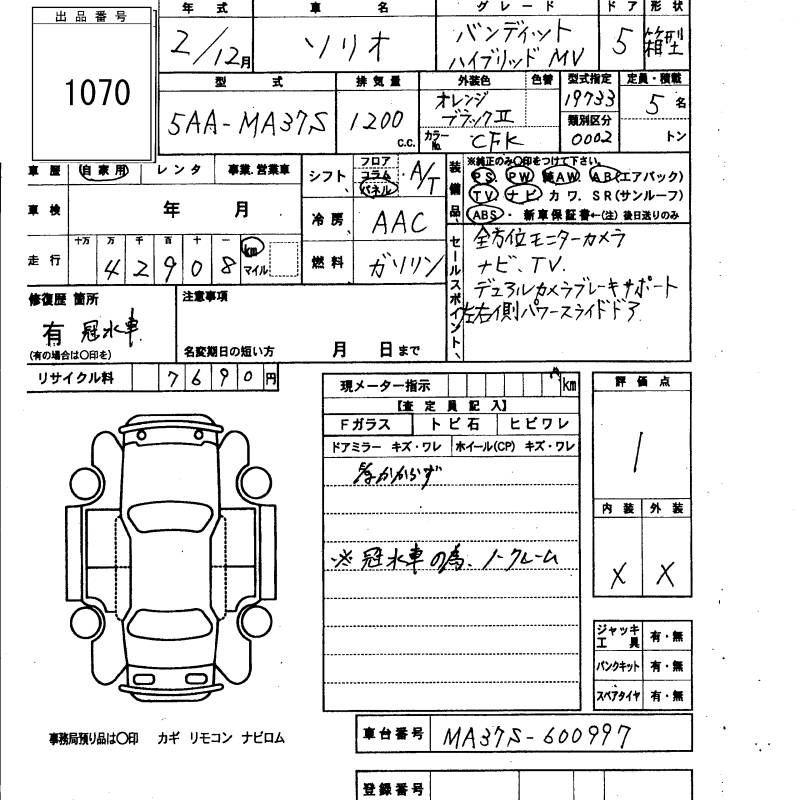 出品番号
1070
年式
2/12月
車名
ソリオ
グレード
バンディット
ハイブリッド MV
ドア
5
形状
箱型
型式
5AA-MA37S
排気量
1200
c.c.
外装色
色替
オレンジ
ブラックⅡ
カラーNo.
CFK
型式指定
19733
類別区分
0002
定員・積載
5名
トン
車歴 自家用 レンタ 事業.営業車
車検 年 月
走行 十万 万 千 百 十 一
4 2 9 0 8
km
マイル
シフト
フロア
コラム
パネル
A/T
冷房
AAC
燃料
ガソリン
装備品
※純正のみ〇印をつけて下さい。
PS PW AW. AB(エアバック)
TV. ナビ カワ. SR(サンルーフ)
ABS ・ 新車保証書←(注) 後日送りのみ
セールスポイント、
全方位モニターカメラ
ナビ、TV.
デュアルカメラブレーキサポート
左右側パワースライドドア
修復歴 箇所
有 冠水車
(有の場合は〇印を)
注意事項
名変期日の短い方 月 日まで
リサイクル料 7690円
現メーター指示 km
【査定員記入】
Fガラス トビ石 ヒビワレ
ドアミラー キズ・ワレ ホイール(CP) キズ・ワレ
かからず
※ 冠水車の為、ノークレーム
評価点
1
内装 外装
X X
ジャッキ工具 有・無
パンクキット 有・無
スペアタイヤ 有・無
事務局預り品は〇印 カギ リモコン ナビロム
車台番号 MA37S-600997
登録番号